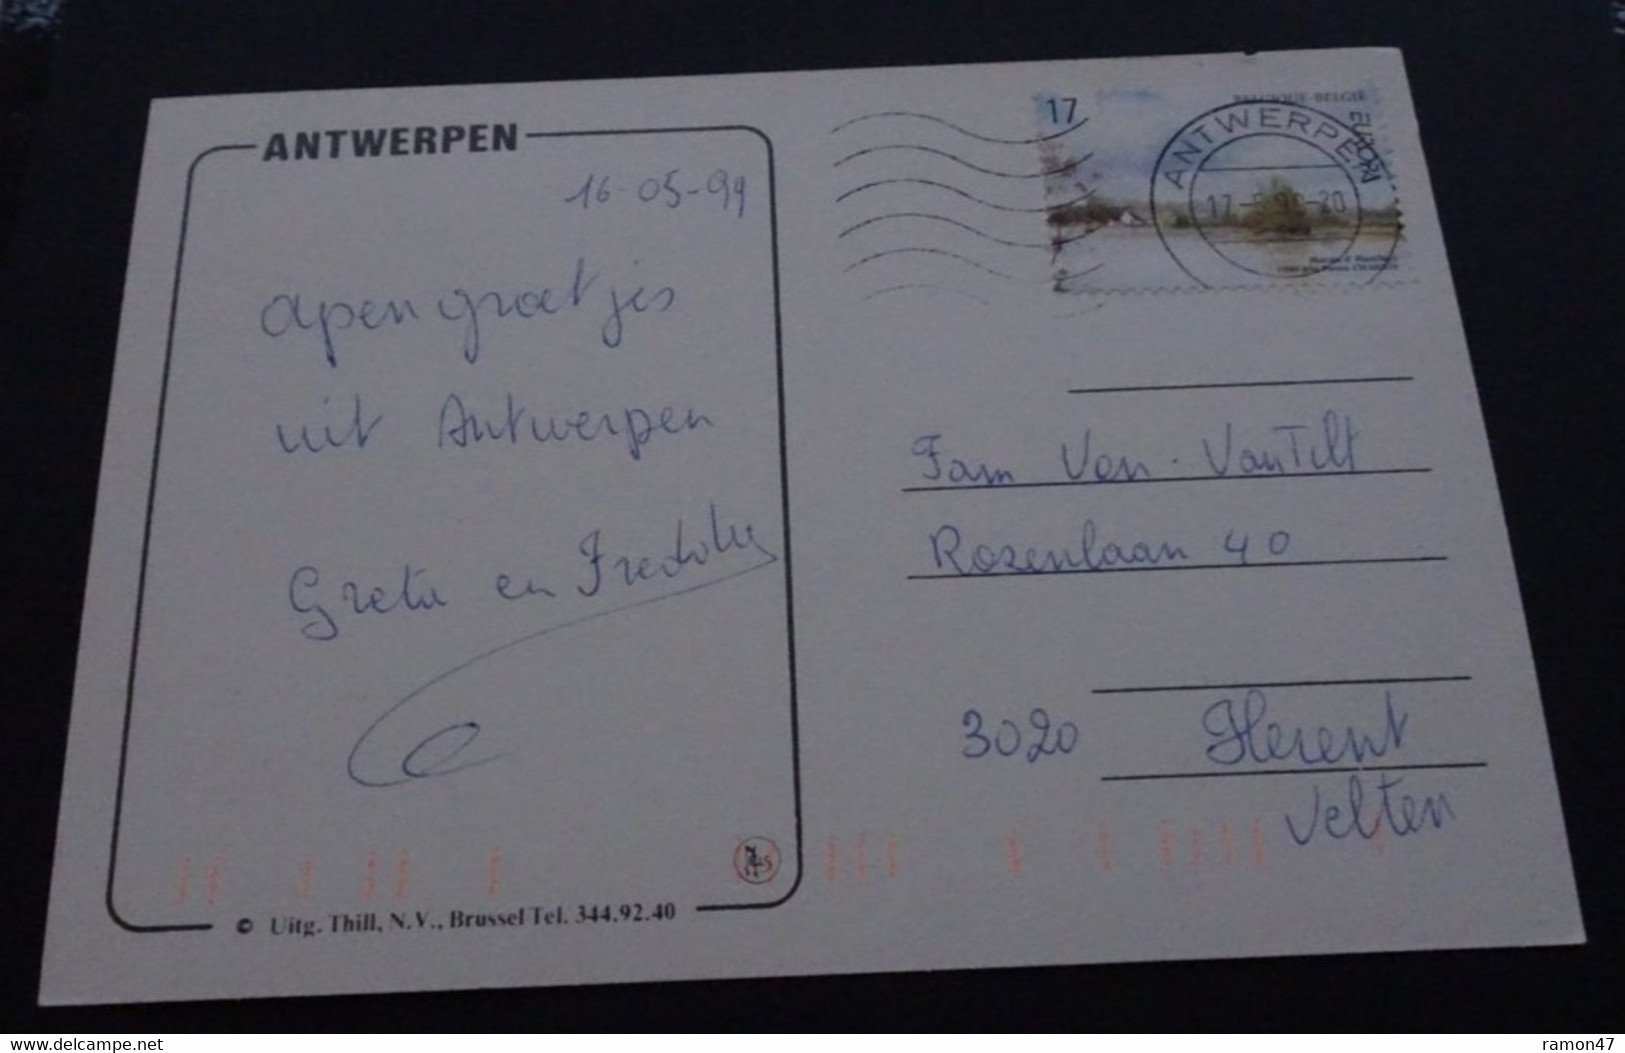 ANTWERPEN
16-05-99
apengroetjes
uit Antwerpen
Greta en Freddy
© Uitg. Thill, N.V., Brussel Tel. 344.92.40
17
BELGIQUE-BELGIË
EUROPA
ANTWERPEN
Fam Ven - VanTilt
Rozenlaan 40
3020 Herent
Velten
delcampe.net
ramon47